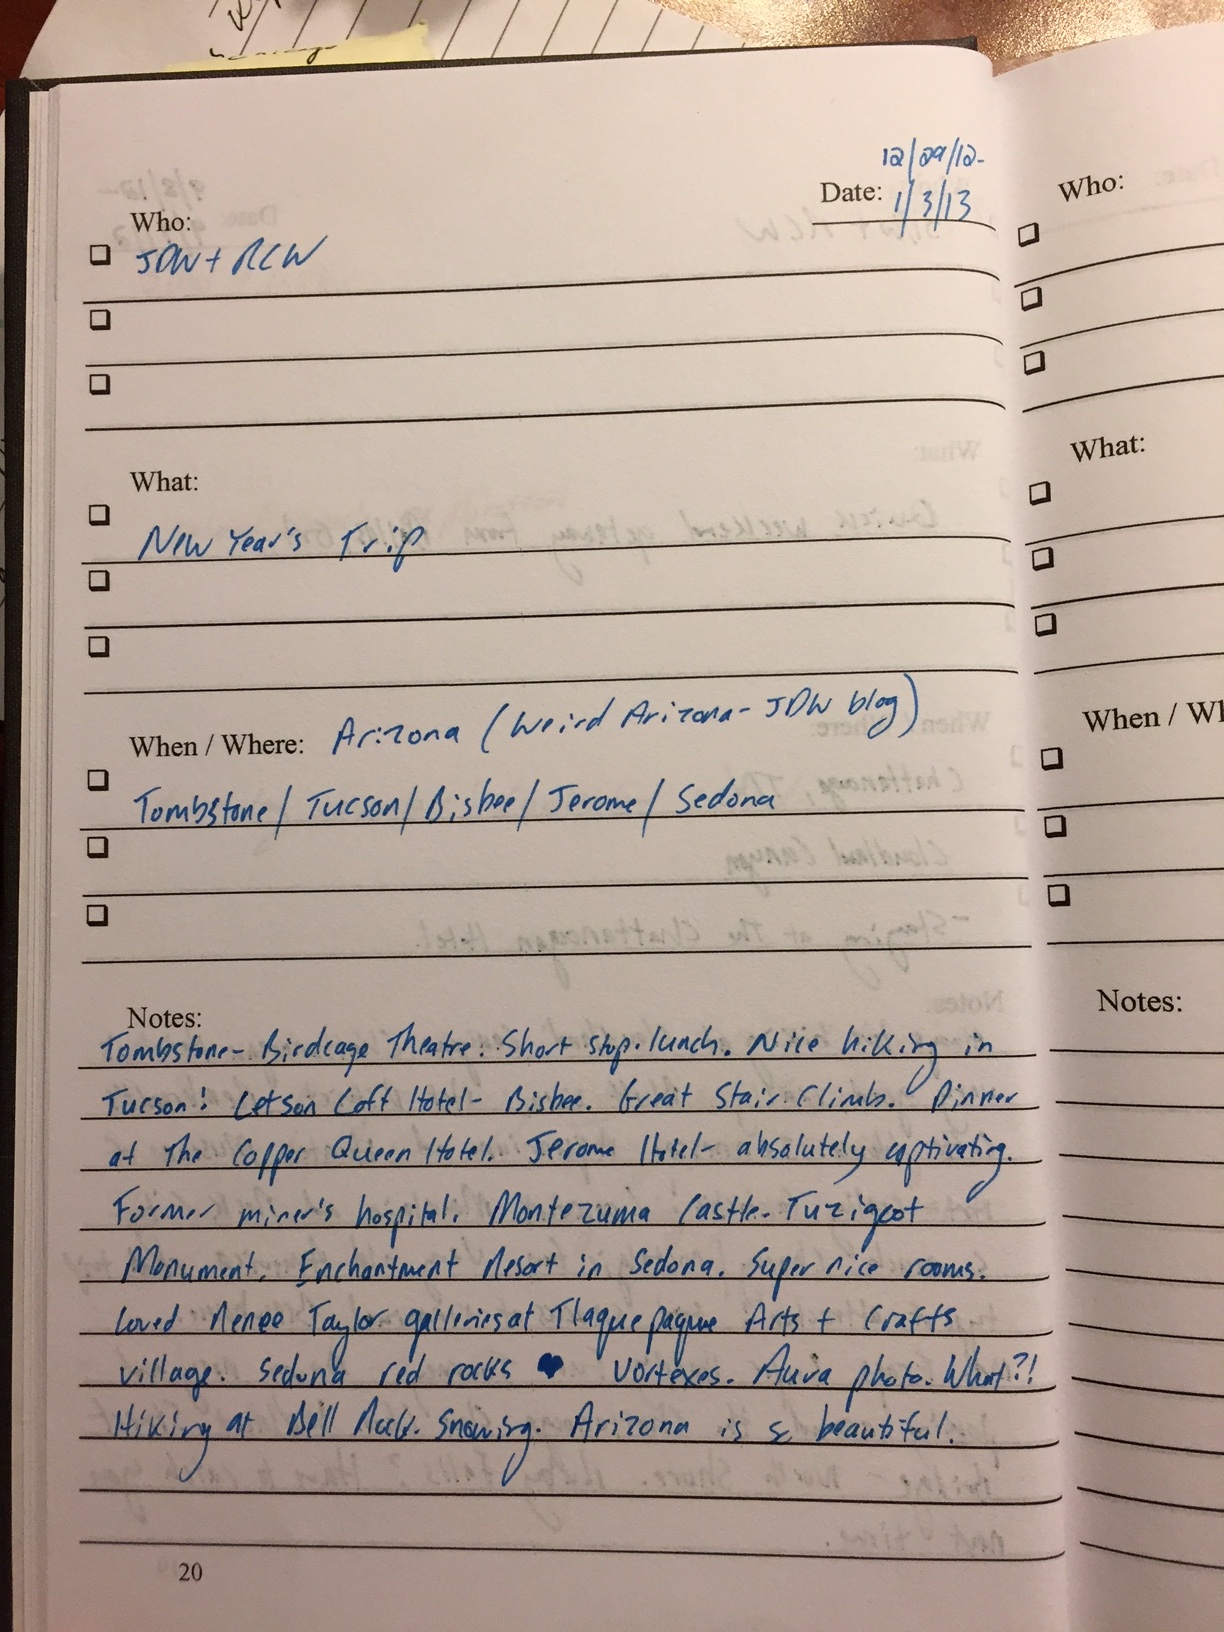 12/29/12-
Date: 1/3/13
Who:
JDW + RCW
What:
New Year's Trip
When / Where: Arizona (Weird Arizona - JDW blog)
Tombstone / Tucson / Bisbee / Jerome / Sedona
Notes:
Tombstone - Birdcage Theatre. Short stop. lunch. Nice hiking in
Tucson! Letson Loft Hotel - Bisbee. Great Stair Climb. Dinner
at The Copper Queen Hotel. Jerome Hotel - absolutely captivating.
Former miner's hospital. Montezuma Castle. Tuzigoot
Monument. Enchantment Resort in Sedona. Super nice rooms.
Loved Renee Taylor galleries at Tlaquepaque Arts + Crafts
village. Sedona red rocks ♥ Vortexes. Aura photo. What?!
Hiking at Bell Rock. Snowing. Arizona is so beautiful.
20
Who:
What:
When / Wh
Notes: